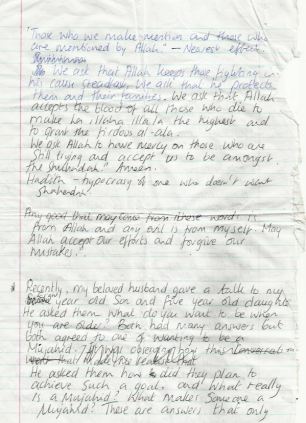 "Those who we make mention and those who
are mentioned by Allah." - Nearest effect.
We ask that Allah keeps those fighting in
his cause steadfast. We ask that he protects
them and their families. We ask that Allah
accepts the blood of all those who die to
make la illaha illala the highest and
to grant the firdous al-ala.
We ask Allah to have mercy on those who are
still trying and accept us to be amongst
the shuhadah. Ameen.
Hadith - hypocrasy of one who doesn't want
Shahadah
Any good that may come from these words is
from Allah and any evil is from myself. May
Allah accept our efforts and forgive our
mistakes.
Recently, my beloved husband gave a talk to my
year old Son and five year old daughter
He asked them what do you want to be when
you are older? Both had many answers but
both agreed to one of wanting to be a
Mujahid. I was observing how this
He asked them how did they plan to
achieve such a goal, and what really
is a Mujahid? What makes someone a
Mujahid? These are answers that only